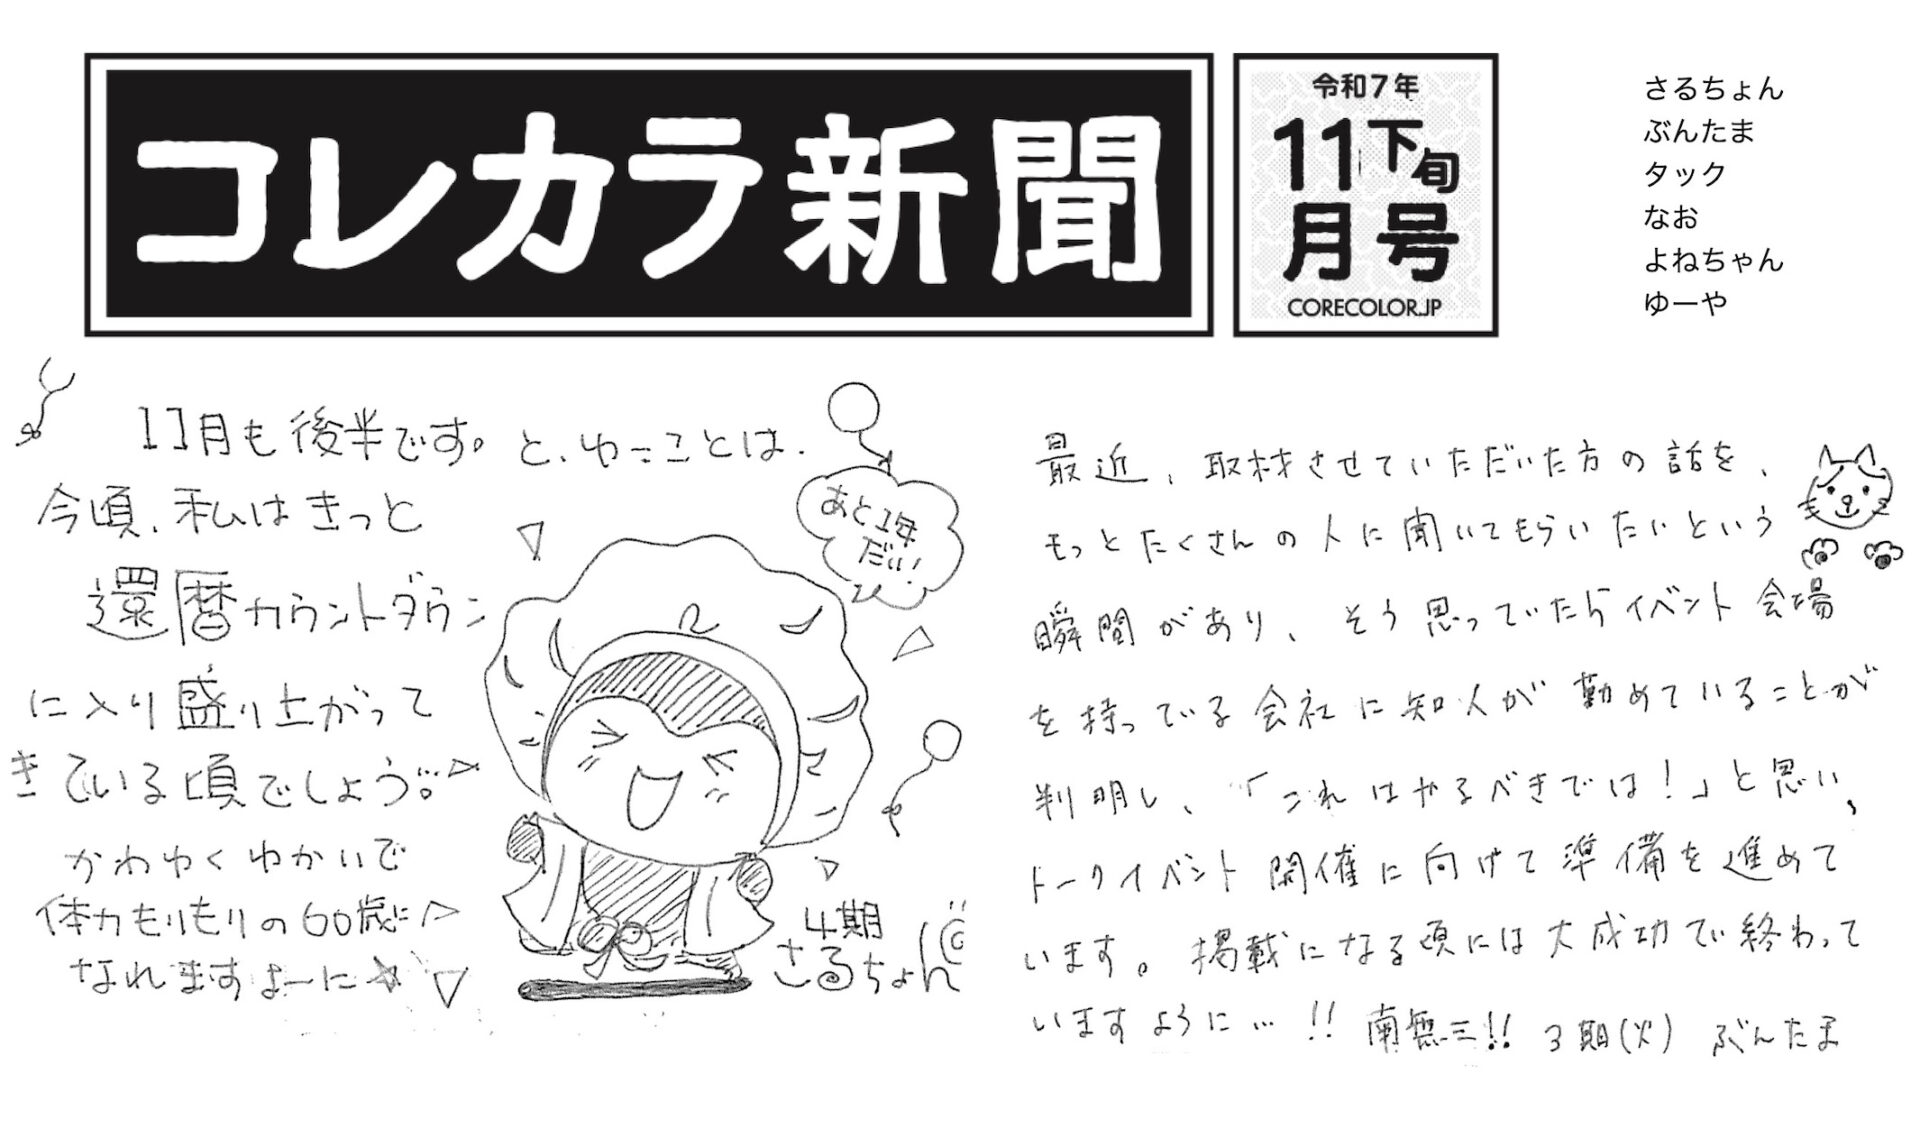 コレカラ新聞
令和7年
11月下旬号
CORECOLOR.JP
さるちょん
ぶんたま
タック
なお
よねちゃん
ゆーや
11月も後半です。と、ゆーことは、
今頃、私はきっと
還暦カウントダウン
に入り盛り上がって
きている頃でしょう。
かわゆくゆかいで
体力もりもりの60歳に
なれますよーに☆
あと1年
だい!
4期
さるちょん
最近、取材させていただいた方の話を、
もっとたくさんの人に聞いてもらいたいという
瞬間があり、そう思っていたらイベント会場
を持っている会社に知人が勤めていることが
判明し、「これはやるべきでは!」と思い、
トークイベント開催に向けて準備を進めて
います。掲載になる頃には大成功で終わって
いますように…!!南無三!! 3期(火) ぶんたま